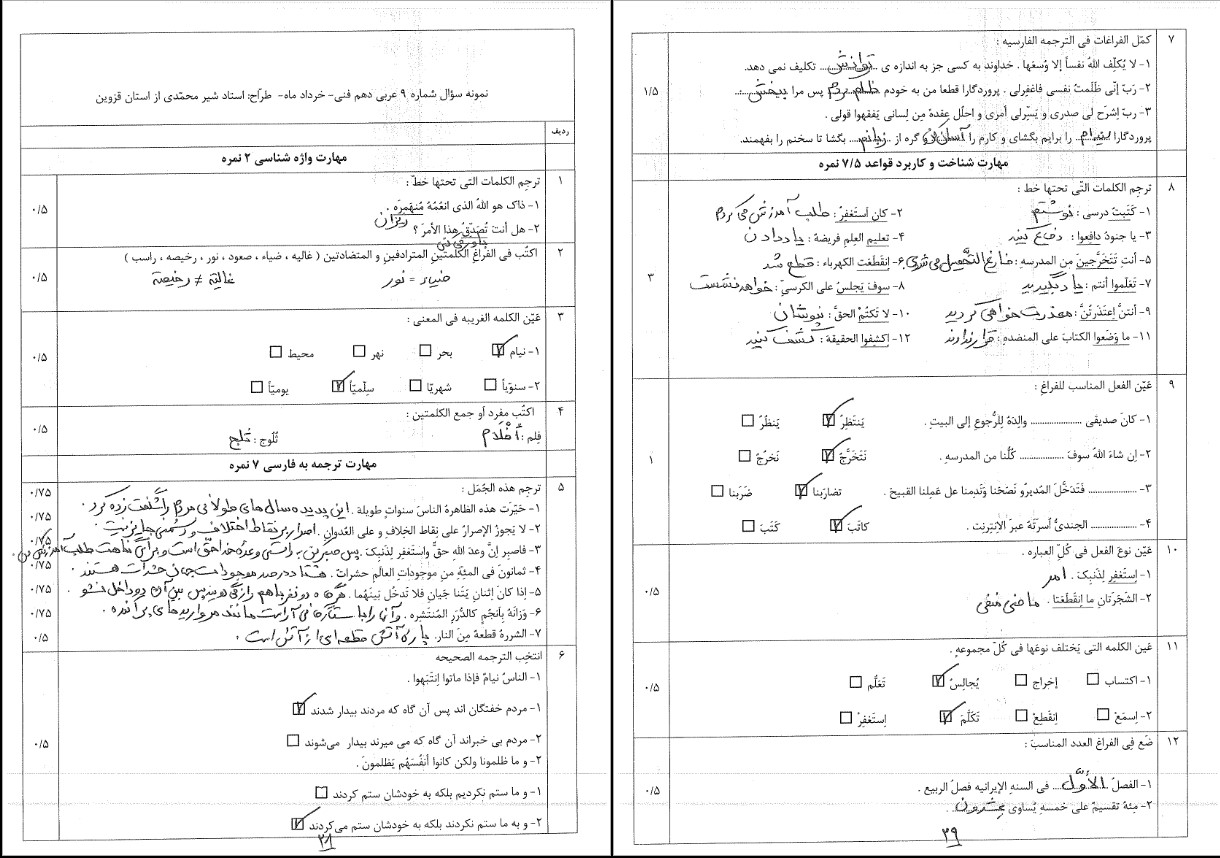 نمونه سؤال شماره ۹ عربی دهم فنی- خرداد ماه- طراح: استاد شیر محمّدی از استان قزوین
ردیف
مهارت واژه شناسی ۲ نمره
۱ ترجِم الکلمات التی تحتها خطّ : ۰/۵
۱- ذاک هو اللهُ الذی انعُمُهُ مُنهَمِرَه . ریزان
۲- هل أنتَ تُصَدِّقُ هذا الأمرَ ؟ باور می کنی
۲ اکتُب فی الفَراغِ الکلمتَینِ المترادفَینِ و المتضادتَینِ ( غالیه ، ضیاء ، صعود ، نور ، رخیصه ، راسب ) ۰/۵
ضیاء = نور غالیة ≠ رخیصة
۳ عَیّن الکلمه الغریبه فی المعنی : ۰/۵
۱- نیام بحر نهر محیط
۲- سنویّاً شهریّا سِلمیّاً یومیّاً
۴ اکتُب مفرد أو جمع الکلمتین : ۰/۵
فِلم : أفلام ثُلُوج : ثلج
مهارت ترجمه به فارسی ۷ نمره
۵ ترجِم هذه الجُمَل : ۰/۷۵
۱- حَیّرَت هذه الظاهرهُ الناسَ سنواتٍ طویلة . این پدیده سال های طولانی مردم را شگفت زده کرد . ۰/۷۵
۲- لا یَجوزُ الإصرارُ علی نِقاط الخِلافِ و علی العُدوانِ . اصرار بر نقاط اختلاف و دشمنی جایز نیست . ۰/۷۵
۳- فاصبِر إنَّ وعدَ اللهِ حقٌ واستَغفِر لِذَنبِکَ. پس صبر کن به راستی وعده خدا حق است و برای گناهت طلب آمرزش کن . ۰/۷۵
۴- ثمانونَ فی المئِهِ مِن موجوداتِ العالَم حشراتٌ . هشتاد درصد موجودات جهان حشرات هستند . ۰/۷۵
۵- إذا کانَ إثنانِ یَتَنا جَیانِ فَلا تَدخُل بَینَهُما . هرگاه دو نفر با هم راز می گویند پس بین آن دو داخل نشو
۶- وَزانَهُ بِأنجُمٍ کالدُرَرِ المُنتَشِره . و آن را با ستارگانی آراست مانند مرواریدهای پراکنده . ۰/۷۵
۷- الشررهُ قطعهٌ مِنَ النار. پاره آتش قطعه ای از آتش است . ۰/۵
۶ انتخِب الترجمه الصحیحه
۱- الناسُ نیامٌ فإذا ماتوا اِنتَبَهوا .
۱- مردم خفتگان اند پس آن گاه که مردند بیدار شدند
۲- مردم بی خبراند آن گاه که می میرند بیدار می‌شوند ۰/۵
۲- و ما ظلمونا ولکن کانوا أنفُسَهُم یَظلمونَ .
۱- و ما ستم نکردیم بلکه به خودشان ستم کردند
۲- و به ما ستم نکردند بلکه به خودشان ستم می‌کردند
۳۸
۷ کمّل الفراغات فی الترجمه الفارسیه :
۱- لا یُکلِّف اللهُ نفساً إلا وُسعَها . خداوند به کسی جز به اندازه ی ..توانش.. تکلیف نمی دهد.
۲- رَبّ اِنّی ظَلَمتُ نفسی فاغفِرلی . پروردگارا قطعا من به خودم ظلم کردم پس مرا ببخش ۱/۵
۳- ربّ اِشرَح لی صدری و یَسِّرلی أمری و احلُل عقده مِن لِسانی یَفقهوا قولی .
پروردگارا سینه‌ام را برایم بگشای و کارم را آسان کن و گره از زبانم بگشا تا سخنم را بفهمند.
مهارت شناخت و کاربرد قواعد ۷/۵ نمره
۸ ترجِم الکلمات الّتی تحتها خط :
۱- کَتَبتُ درسی : نوشتم ۲- کان اَستَغفِرُ : طلب آمرزش می کردم
۳- یا جنودُ دافِعوا : دفاع کنید ۴- تعلیم العِلم فریضهٌ : یاد دادن
۵- أنتِ تَتَخَرَّجینَ مِن المدرسهِ : فارغ التحصیل می شوی ۶- اِنقَطَعَت الکهرباء : قطع شد
۷- تَعَلَّموا أنتم : یاد بگیرید ۸- سوفَ یَجلسُ علی الکرسیّ : خواهد نشست ۳
۹- أنتنَّ اِعتَذَرتُنَّ : معذرت خواهی کردید ۱۰- لا تَکتُمْ الحقَّ : نپوشان
۱۱- ما وَضَعوا الکتابَ علی المنضده : قرار ندادند ۱۲- اِکشِفوا الحقیقة : کشف کنید
۹ عَیِّن الفعل المناسب للفراغِ :
۱- کانَ صدیقی .................. والِدَهُ لِلرُّجوع إلی البیتِ . یَنتَظِرُ یَنظُرُ
۲- إن شاءَ اللهُ سوفَ ................ کُلُّنا مِن المدرسهِ . نَتَخَرَّجُ نَخرُجُ ۱
۳- ................... فَتَدَخَّلَ المُدیرُو نَصَحَنا وَنَدِمنا عل عَمِلنا القبیح . تضارَبنا ضَرَبنا
۴- ................ الجندیُّ أسرَتَهُ عبرَ الإنترنِت . کاتَبَ کَتَبَ
۱۰ عَیّن نوع الفعل فی کُلّ العباره .
۱- إستَغفِر لِذَنبِکَ . امر ۰/۵
۲- الشَجَرَتانِ ما اِنقَطَعَتا . ماضی منفی
۱۱ عَین الکلمه التی یَختلف نوعُها فی کُلّ مجموعهٍ .
۱- اکتساب إخراج یُجالِسُ تَعَلّم ۰/۵
۲- اِسمَعْ اِنقَطِعْ تَکَلَّمَ اِستَغفِرْ
۱۲ ضَع فِی الفراغ العدد المناسبَ :
۱- الفصلُ ..الأوّل.. فی السنهِ الإیرانیه فصلُ الربیع . ۰/۵
۲- مِئهٌ تقسیمٌ علی خمسهِ یُساوی عِشرون .
۳۹